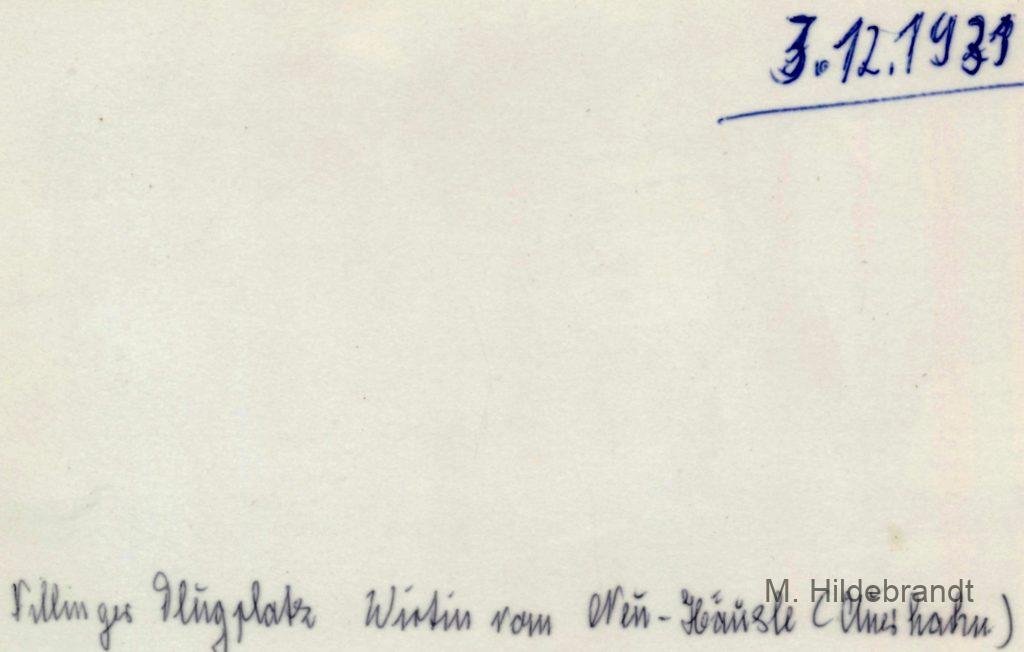 3.12.1931
M. Hildebrandt
Villinger Flugplatz Wirtin vom Neu-Häusle (Auerhahn)